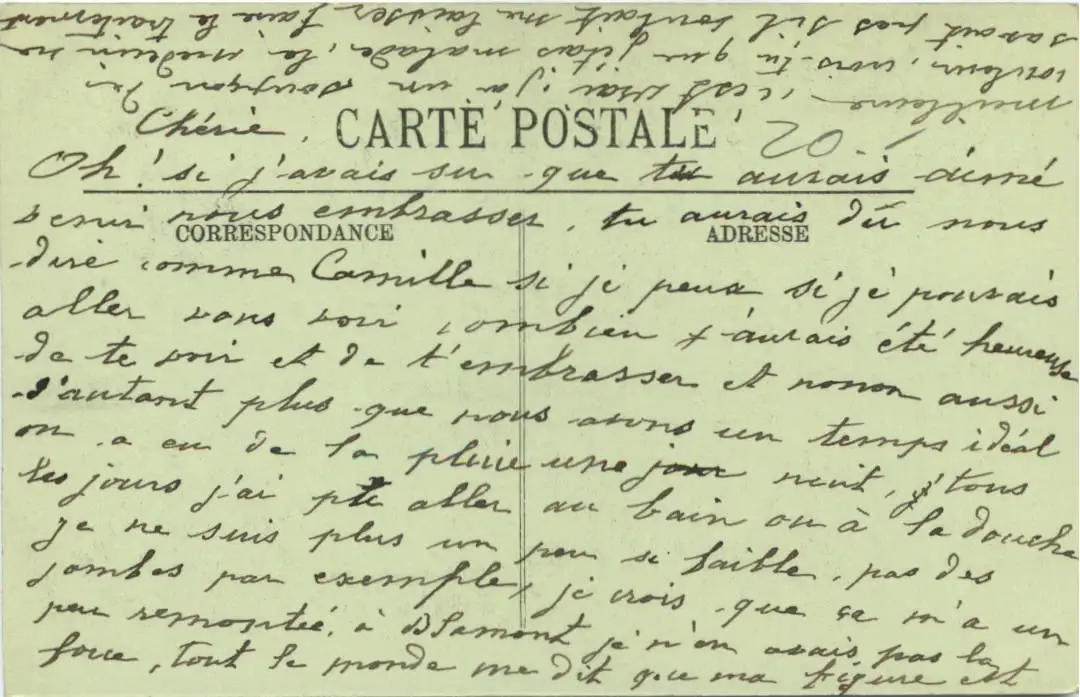 CARTE POSTALE
CORRESPONDANCE
ADRESSE
20
Chérie,
Oh! si j'avais su que tu aurais aimé
venir nous embrasser, tu aurais dû nous
dire comme Camille si je peux si je pouvais
aller vous voir combien j'aurais été heureuse
de te voir et de t'embrasser et nonon aussi
d'autant plus que nous avons un temps idéal
on a eu de la pluie une jour nuit, j' tous
les jours j'ai pu aller au bain ou à la douche
je ne suis plus un peu si faible, pas des
jambes par exemple, je crois que ça m'a un
peu remontée, à Blamont je n'en avais pas la
force, tout le monde me dit que ma figure est
meilleure, c'est vrai, j'a un soupçon de
couleur, crois-tu que j'étais malade, le médecin ne
savait pas s'il voulait me laisser faire le traitement